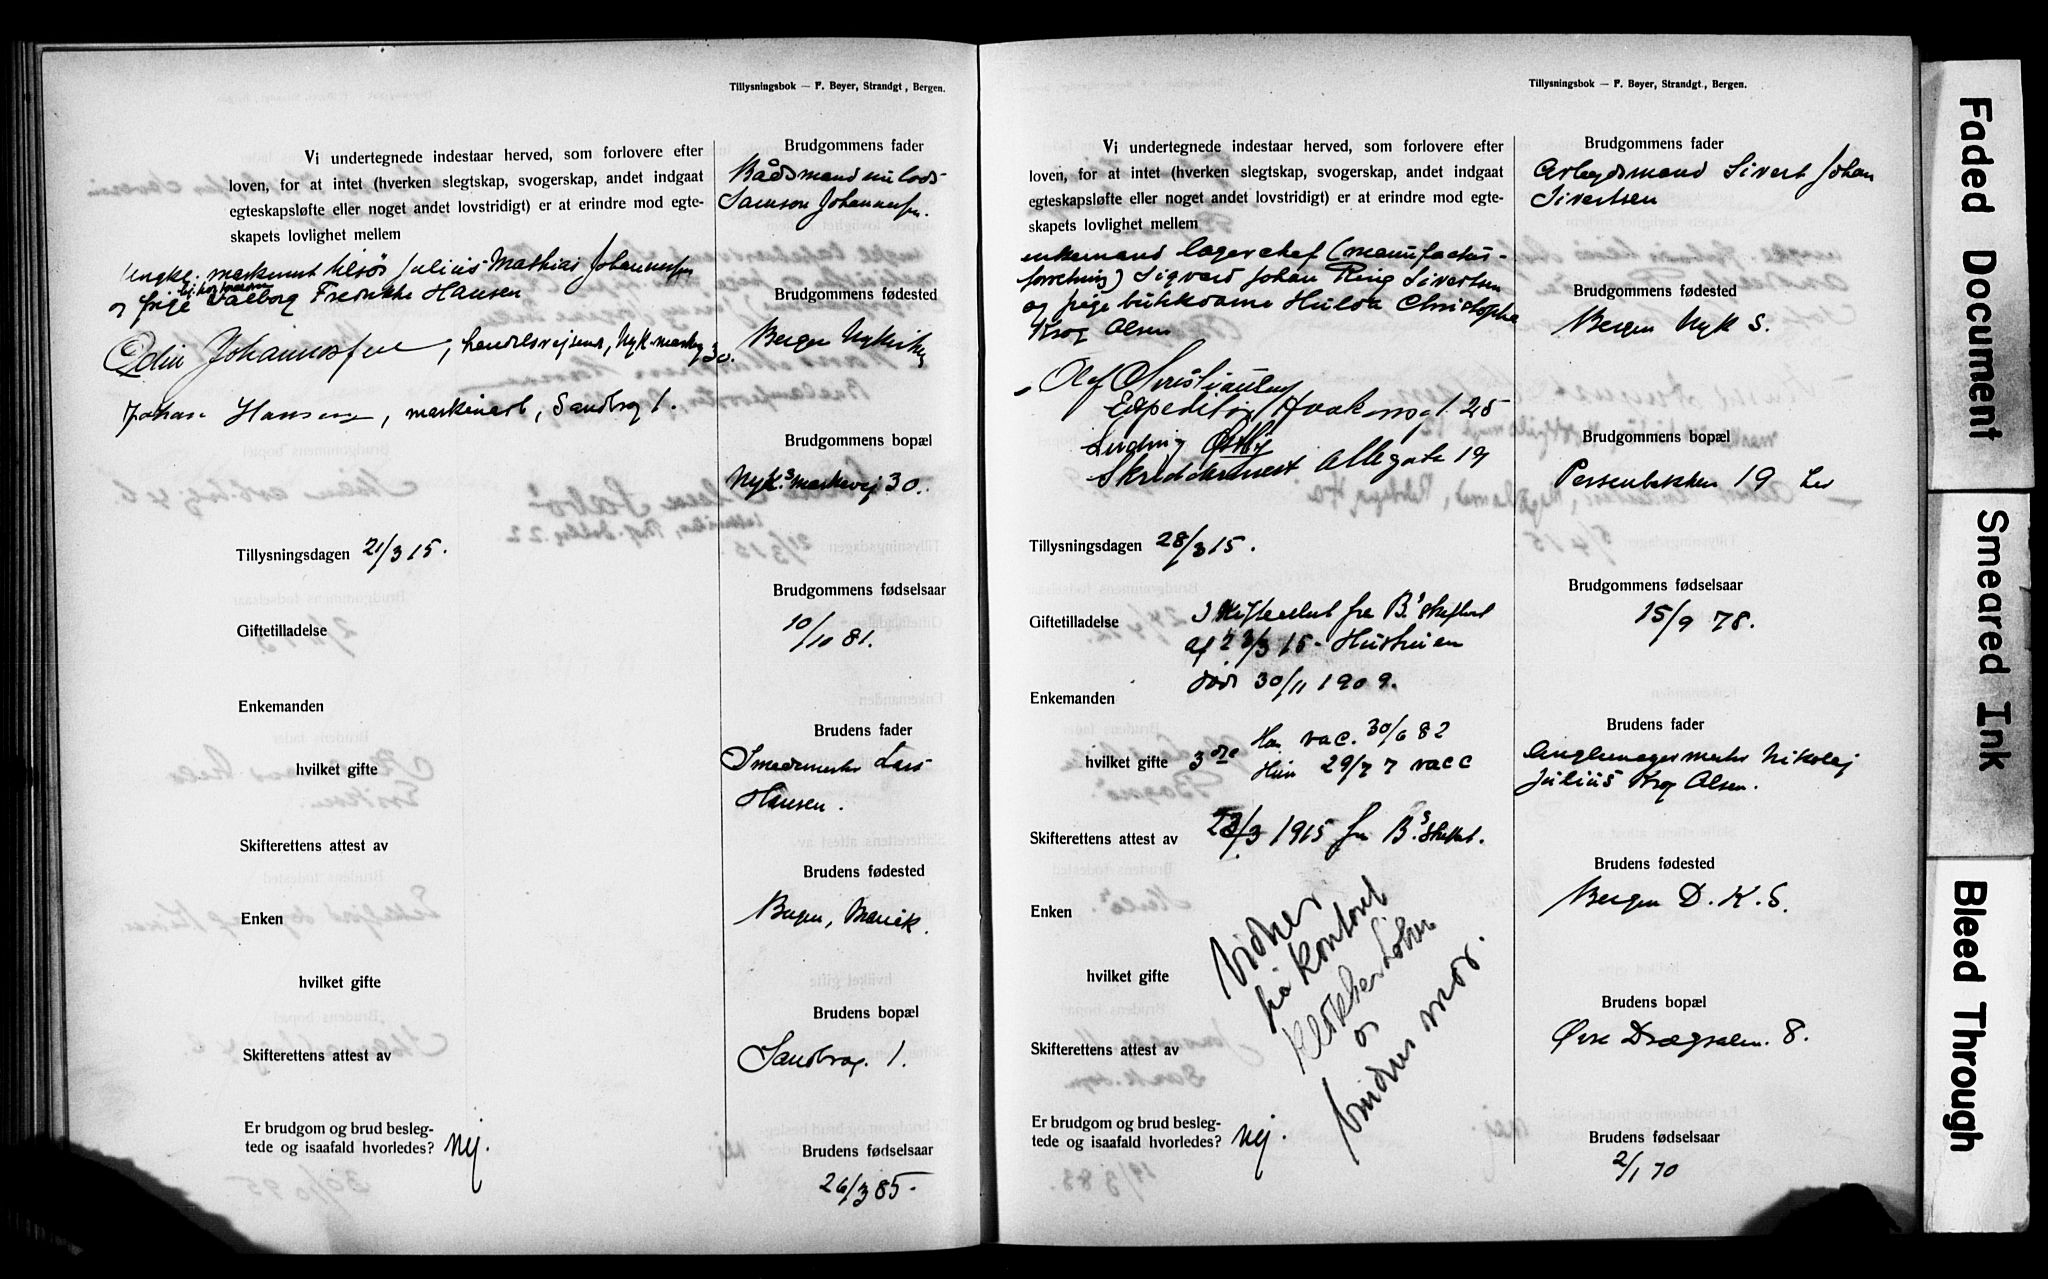 Tillysningsbok — F. Beyer, Strandgt, Bergen.
Vi undertegnede indestaar herved, som forlovere efter
loven, for at intet (hverken slegtskap, svogerskap, andet indgaat
egteskapsløfte eller noget andet lovstridigt) er at erindre mod egte-
skapets lovlighet mellem
Julius Mathias Johannessen
og pige Valborg Fredrikke Hansen
Odin Johannessen, handelsreisende, Nyk. markev 30.
Johan Hansen, maskinarb, Sandbrog 1.
Tillysningsdagen 21/3 15.
Giftetilladelse
Enkemanden
hvilket gifte
Skifterettens attest av
Enken
hvilket gifte
Skifterettens attest av
Er brudgom og brud besleg-
tede og isaafald hvorledes? Nej.
Brudgommens fader
Baadsmand nu lods
Samson Johannessen.
Brudgommens fødested
Bergen Nykirke
Brudgommens bopæl
Nyk.s markevej 30.
Brudgommens fødselsaar
10/10 81.
Brudens fader
Smedmester Lars
Hansen.
Brudens fødested
Bergen,
Brudens bopæl
Sandbrog. 1.
Brudens fødselsaar
26/3 85.
Tillysningsbok — F. Beyer, Strandgt., Bergen.
Vi undertegnede indestaar herved, som forlovere efter
loven, for at intet (hverken slegtskap, svogerskap, andet indgaat
egteskapsløfte eller noget andet lovstridigt) er at erindre mod egte-
skapets lovlighet mellem
enkemand lagerchef (manufactur-
forretning) Sigvard Johan Ring Sivertsen
og pige butikdame Hulda Christopha
Krog Olsen
Olaf
Expeditør, Haakonsg. 25
Ludvig
Skreddermest Allegate 19
Tillysningsdagen 28/3 15.
Giftetilladelse Skifteattest fra B.s skifteret
af 23/3 15. Hustruen
død 30/11 1909.
Enkemanden
hvilket gifte 3die Han vac. 30/6 82
Hun 29/7 7 vacc
Skifterettens attest av 23/3 1915 fra B.s skifteret.
Enken
hvilket gifte
Skifterettens attest av
Vidner
på kontoret
Klokker
og
brudens mor.
Er brudgom og brud besleg-
tede og isaafald hvorledes? Nej.
Brudgommens fader
Arbejdsmand Sivert Johan
Sivertsen
Brudgommens fødested
Bergen Nyk S.
Brudgommens bopæl
Persenbakken 19
Brudgommens fødselsaar
15/9 78.
Brudens fader
Nikolej
Julius Krog Olsen.
Brudens fødested
Bergen D. K. S.
Brudens bopæl
Øvre Drægsalm. 8.
Brudens fødselsaar
2/1 70
Faded Document
Smeared Ink
Bleed Through